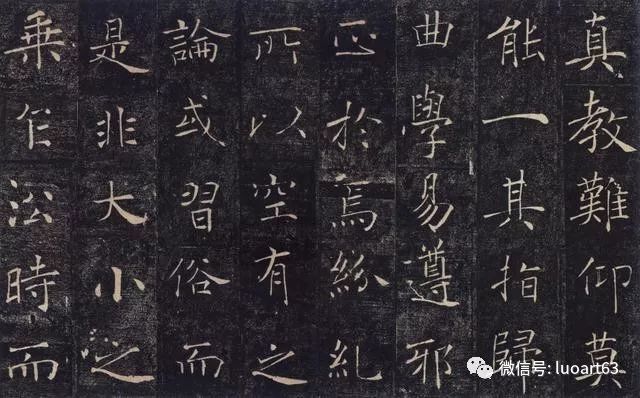 真教難仰莫
能一其指歸
曲學易遵邪
正於焉紛糺
所以空有之
論或習俗而
是非大小之
乘乍沿時而
微信号: luoart63